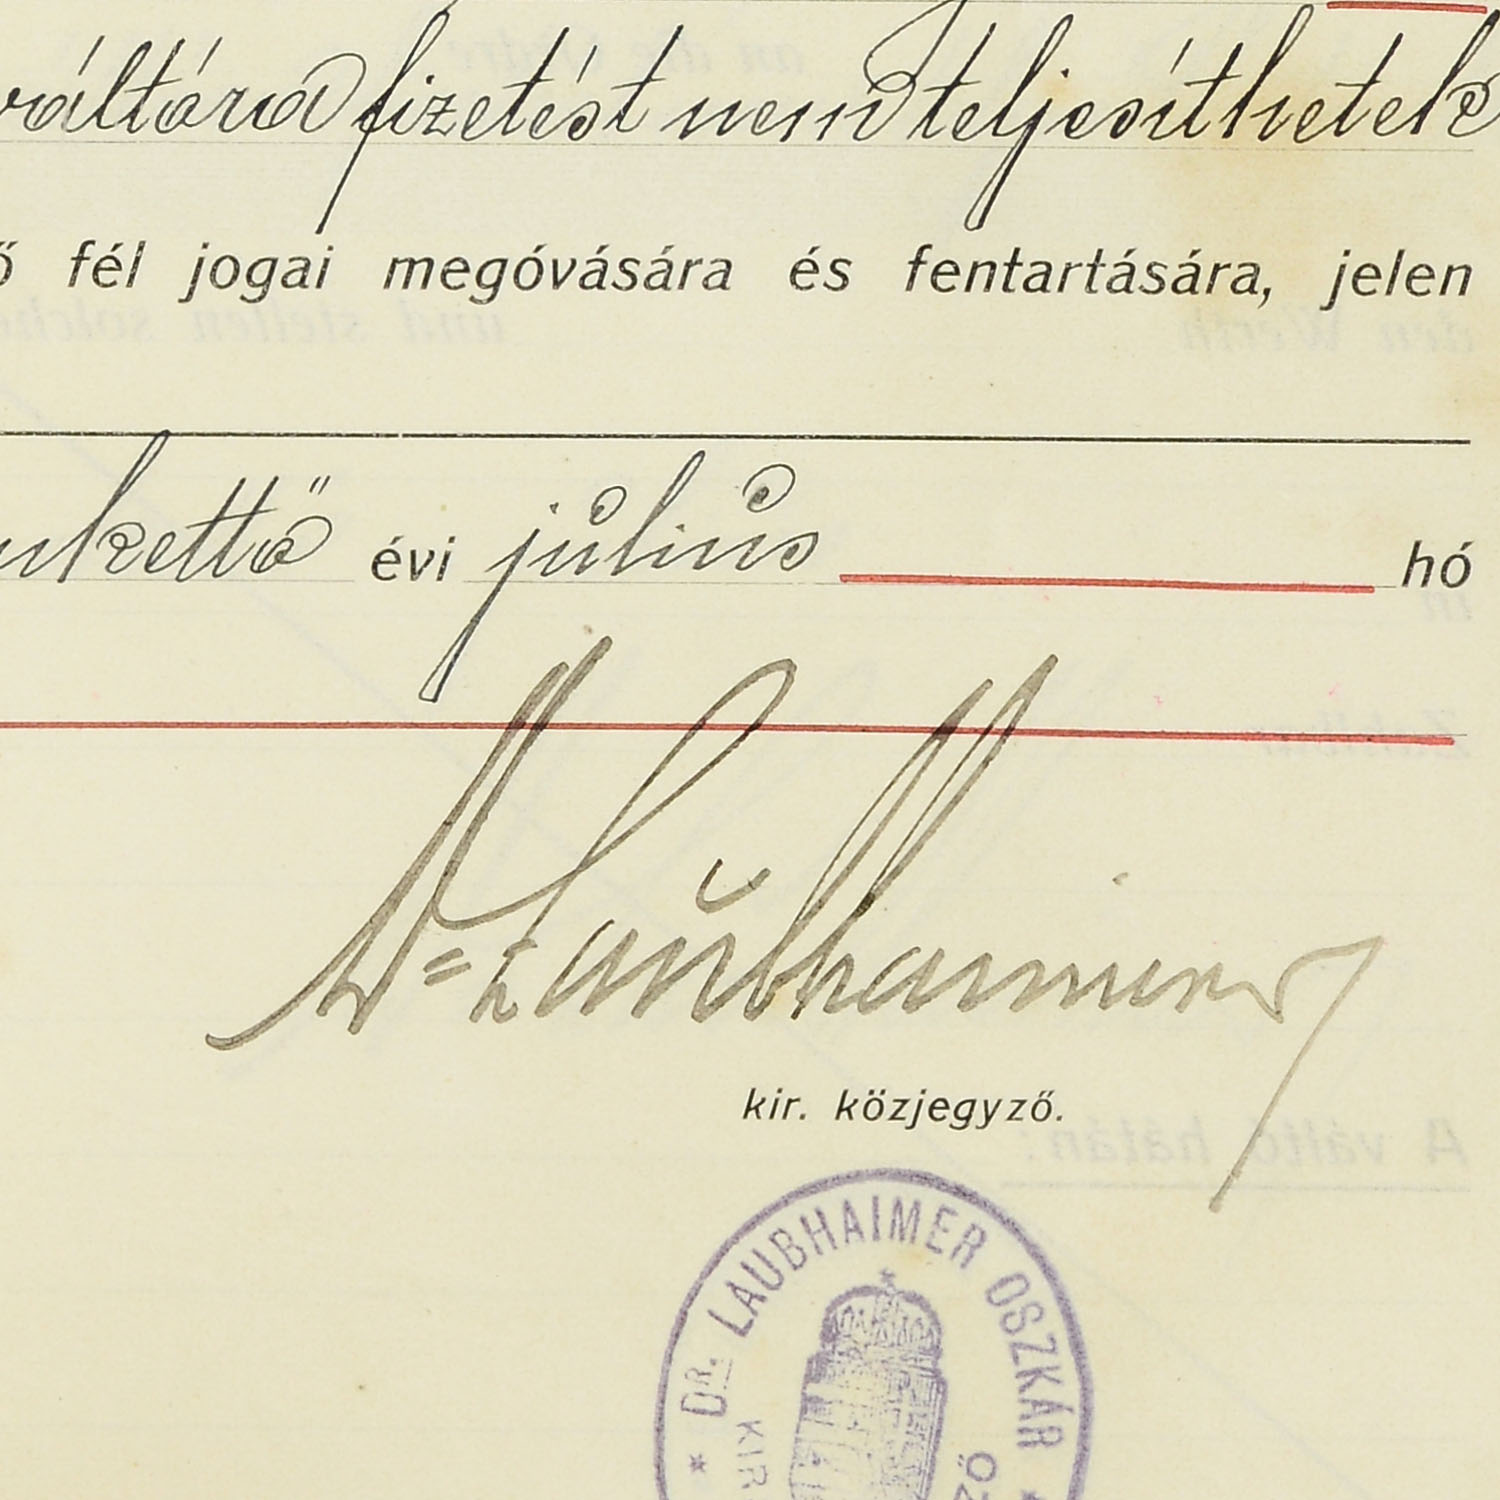 váltóra fizetést nem teljesíthetek
ő fél jogai megóvására és fentartására, jelen
ukettő évi július hó
Dr Laubhaimer
kir. közjegyző.
DR. LAUBHAIMER OSZKÁR
KIR